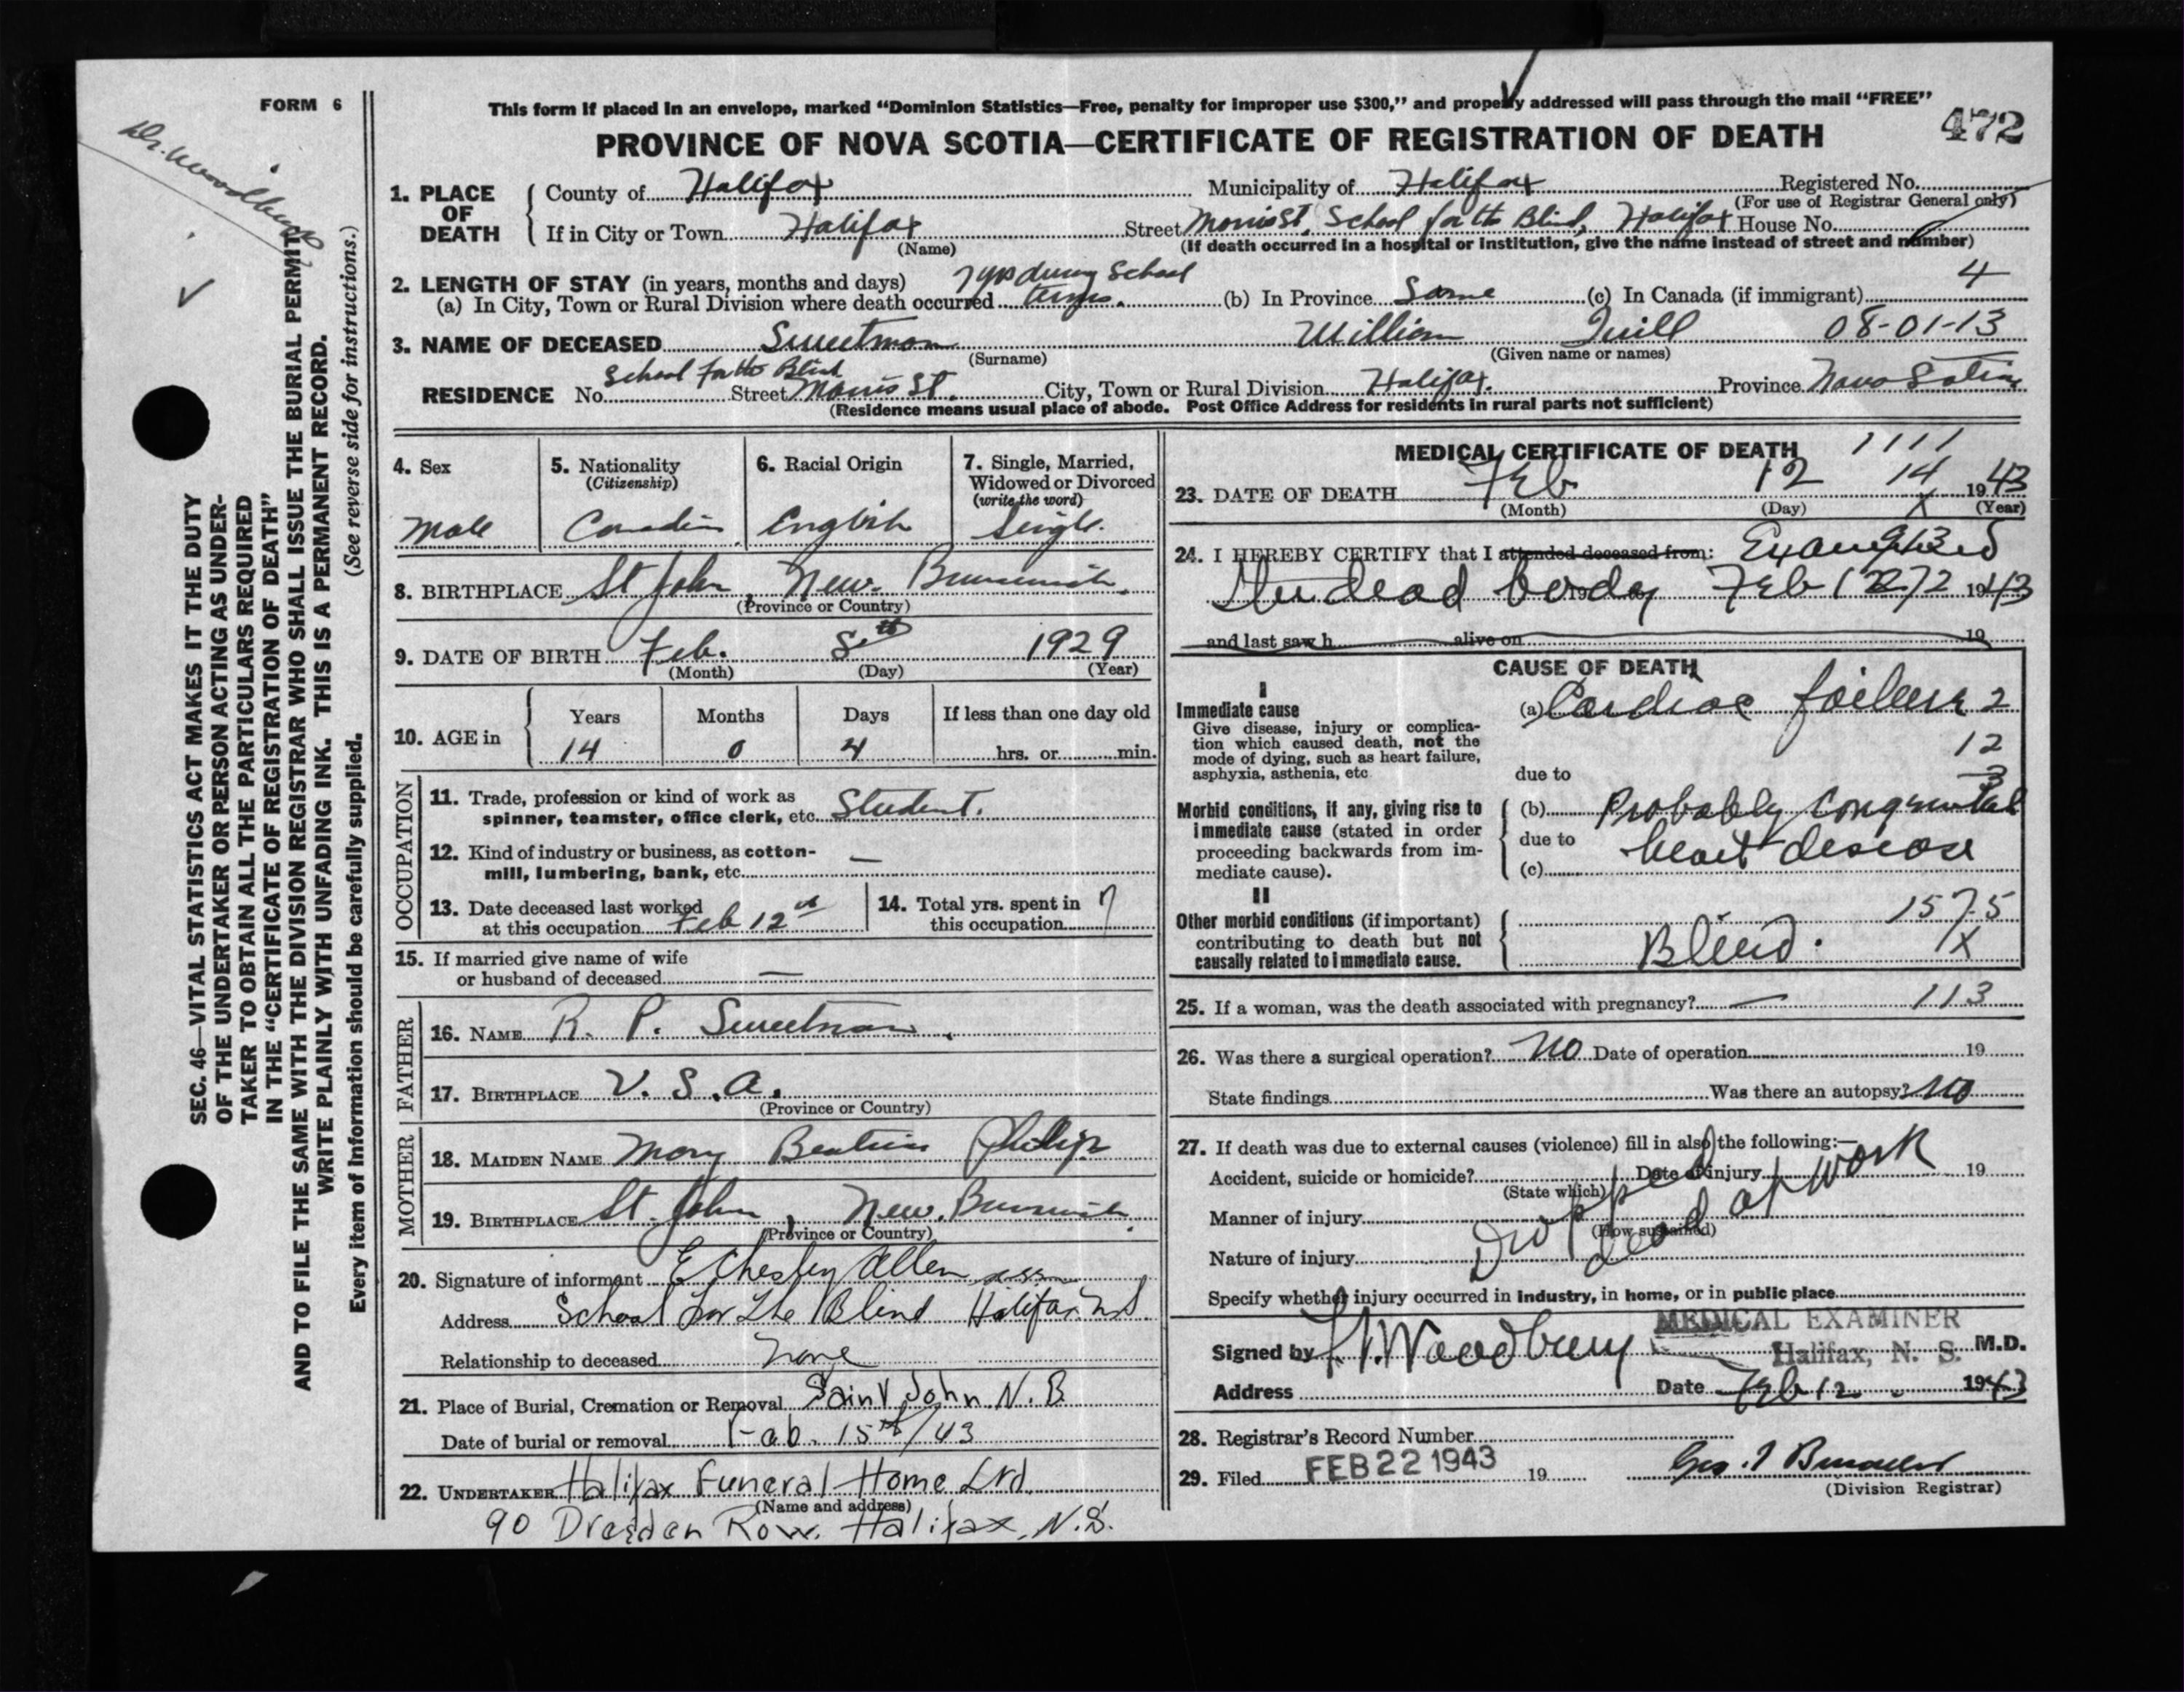 FORM 6
This form if placed in an envelope, marked “Dominion Statistics—Free, penalty for improper use $300,” and properly addressed will pass through the mail “FREE”
PROVINCE OF NOVA SCOTIA—CERTIFICATE OF REGISTRATION OF DEATH
472
Dr. Woodbury
SEC. 46—VITAL STATISTICS ACT MAKES IT THE DUTY
OF THE UNDERTAKER OR PERSON ACTING AS UNDER-
TAKER TO OBTAIN ALL THE PARTICULARS REQUIRED
IN THE “CERTIFICATE OF REGISTRATION OF DEATH”
AND TO FILE THE SAME WITH THE DIVISION REGISTRAR WHO SHALL ISSUE THE BURIAL PERMIT.
WRITE PLAINLY WITH UNFADING INK. THIS IS A PERMANENT RECORD.
Every item of information should be carefully supplied. (See reverse side for instructions.)
1. PLACE OF DEATH
County of Halifax Municipality of Halifax Registered No.
(For use of Registrar General only)
If in City or Town Halifax Street Morris St. School for the Blind, Halifax House No.
(Name) (If death occurred in a hospital or institution, give the name instead of street and number)
2. LENGTH OF STAY (in years, months and days) 7 yrs during School 4
(a) In City, Town or Rural Division where death occurred terms. (b) In Province Same (c) In Canada (if immigrant)
3. NAME OF DECEASED Sweetman William 08-01-13
(Surname) (Given name or names)
School for the Blind
RESIDENCE No. Street Morris St. City, Town or Rural Division Halifax. Province Nova Scotia
(Residence means usual place of abode. Post Office Address for residents in rural parts not sufficient)
4. Sex 5. Nationality (Citizenship) 6. Racial Origin 7. Single, Married, Widowed or Divorced (write the word)
Male Canadian English Single.
8. BIRTHPLACE St John, New Brunswick.
(Province or Country)
9. DATE OF BIRTH Feb. 8th 1929
(Month) (Day) (Year)
10. AGE in Years Months Days If less than one day old
14 0 4 hrs. or min.
OCCUPATION
11. Trade, profession or kind of work as
spinner, teamster, office clerk, etc. Student.
12. Kind of industry or business, as cotton-
mill, lumbering, bank, etc. —
13. Date deceased last worked
at this occupation Feb 12th
14. Total yrs. spent in
this occupation 7
15. If married give name of wife
or husband of deceased —
FATHER
16. NAME R. P. Sweetman.
17. BIRTHPLACE U.S.A.
(Province or Country)
MOTHER
18. MAIDEN NAME Mary Beatrice Philip
19. BIRTHPLACE St. John, New Brunswick.
(Province or Country)
20. Signature of informant E Chesley Allen
Address School for the Blind Halifax NS.
Relationship to deceased None
21. Place of Burial, Cremation or Removal Saint John N.B
Date of burial or removal Feb. 15th/43
22. UNDERTAKER Halifax Funeral Home Ltd.
(Name and address)
90 Dresden Row, Halifax, N.S.
MEDICAL CERTIFICATE OF DEATH 1111
23. DATE OF DEATH Feb 12 14 1943
(Month) (Day) X (Year)
24. I HEREBY CERTIFY that I attended deceased from: Examined
the dead body Feb 12 1943
and last saw h alive on 19
CAUSE OF DEATH
I
Immediate cause
Give disease, injury or complica-
tion which caused death, not the
mode of dying, such as heart failure,
asphyxia, asthenia, etc
(a) Cardiac failure 2
12
due to 3
Morbid conditions, if any, giving rise to
immediate cause (stated in order
proceeding backwards from im-
mediate cause).
(b) Probably Congenital
due to heart disease
(c)
II
Other morbid conditions (if important)
contributing to death but not
causally related to immediate cause.
157.5
Blind. X
25. If a woman, was the death associated with pregnancy? — 113
26. Was there a surgical operation? No Date of operation 19
State findings Was there an autopsy? No
27. If death was due to external causes (violence) fill in also the following:—
Accident, suicide or homicide? Date of injury 19
(State which)
Manner of injury
(How sustained)
Dropped dead at work
Nature of injury
Specify whether injury occurred in industry, in home, or in public place
MEDICAL EXAMINER
Signed by Woodbury Halifax, N. S. M.D.
Address Date Feb 12 1943
28. Registrar's Record Number
29. Filed FEB 22 1943 19
(Division Registrar)